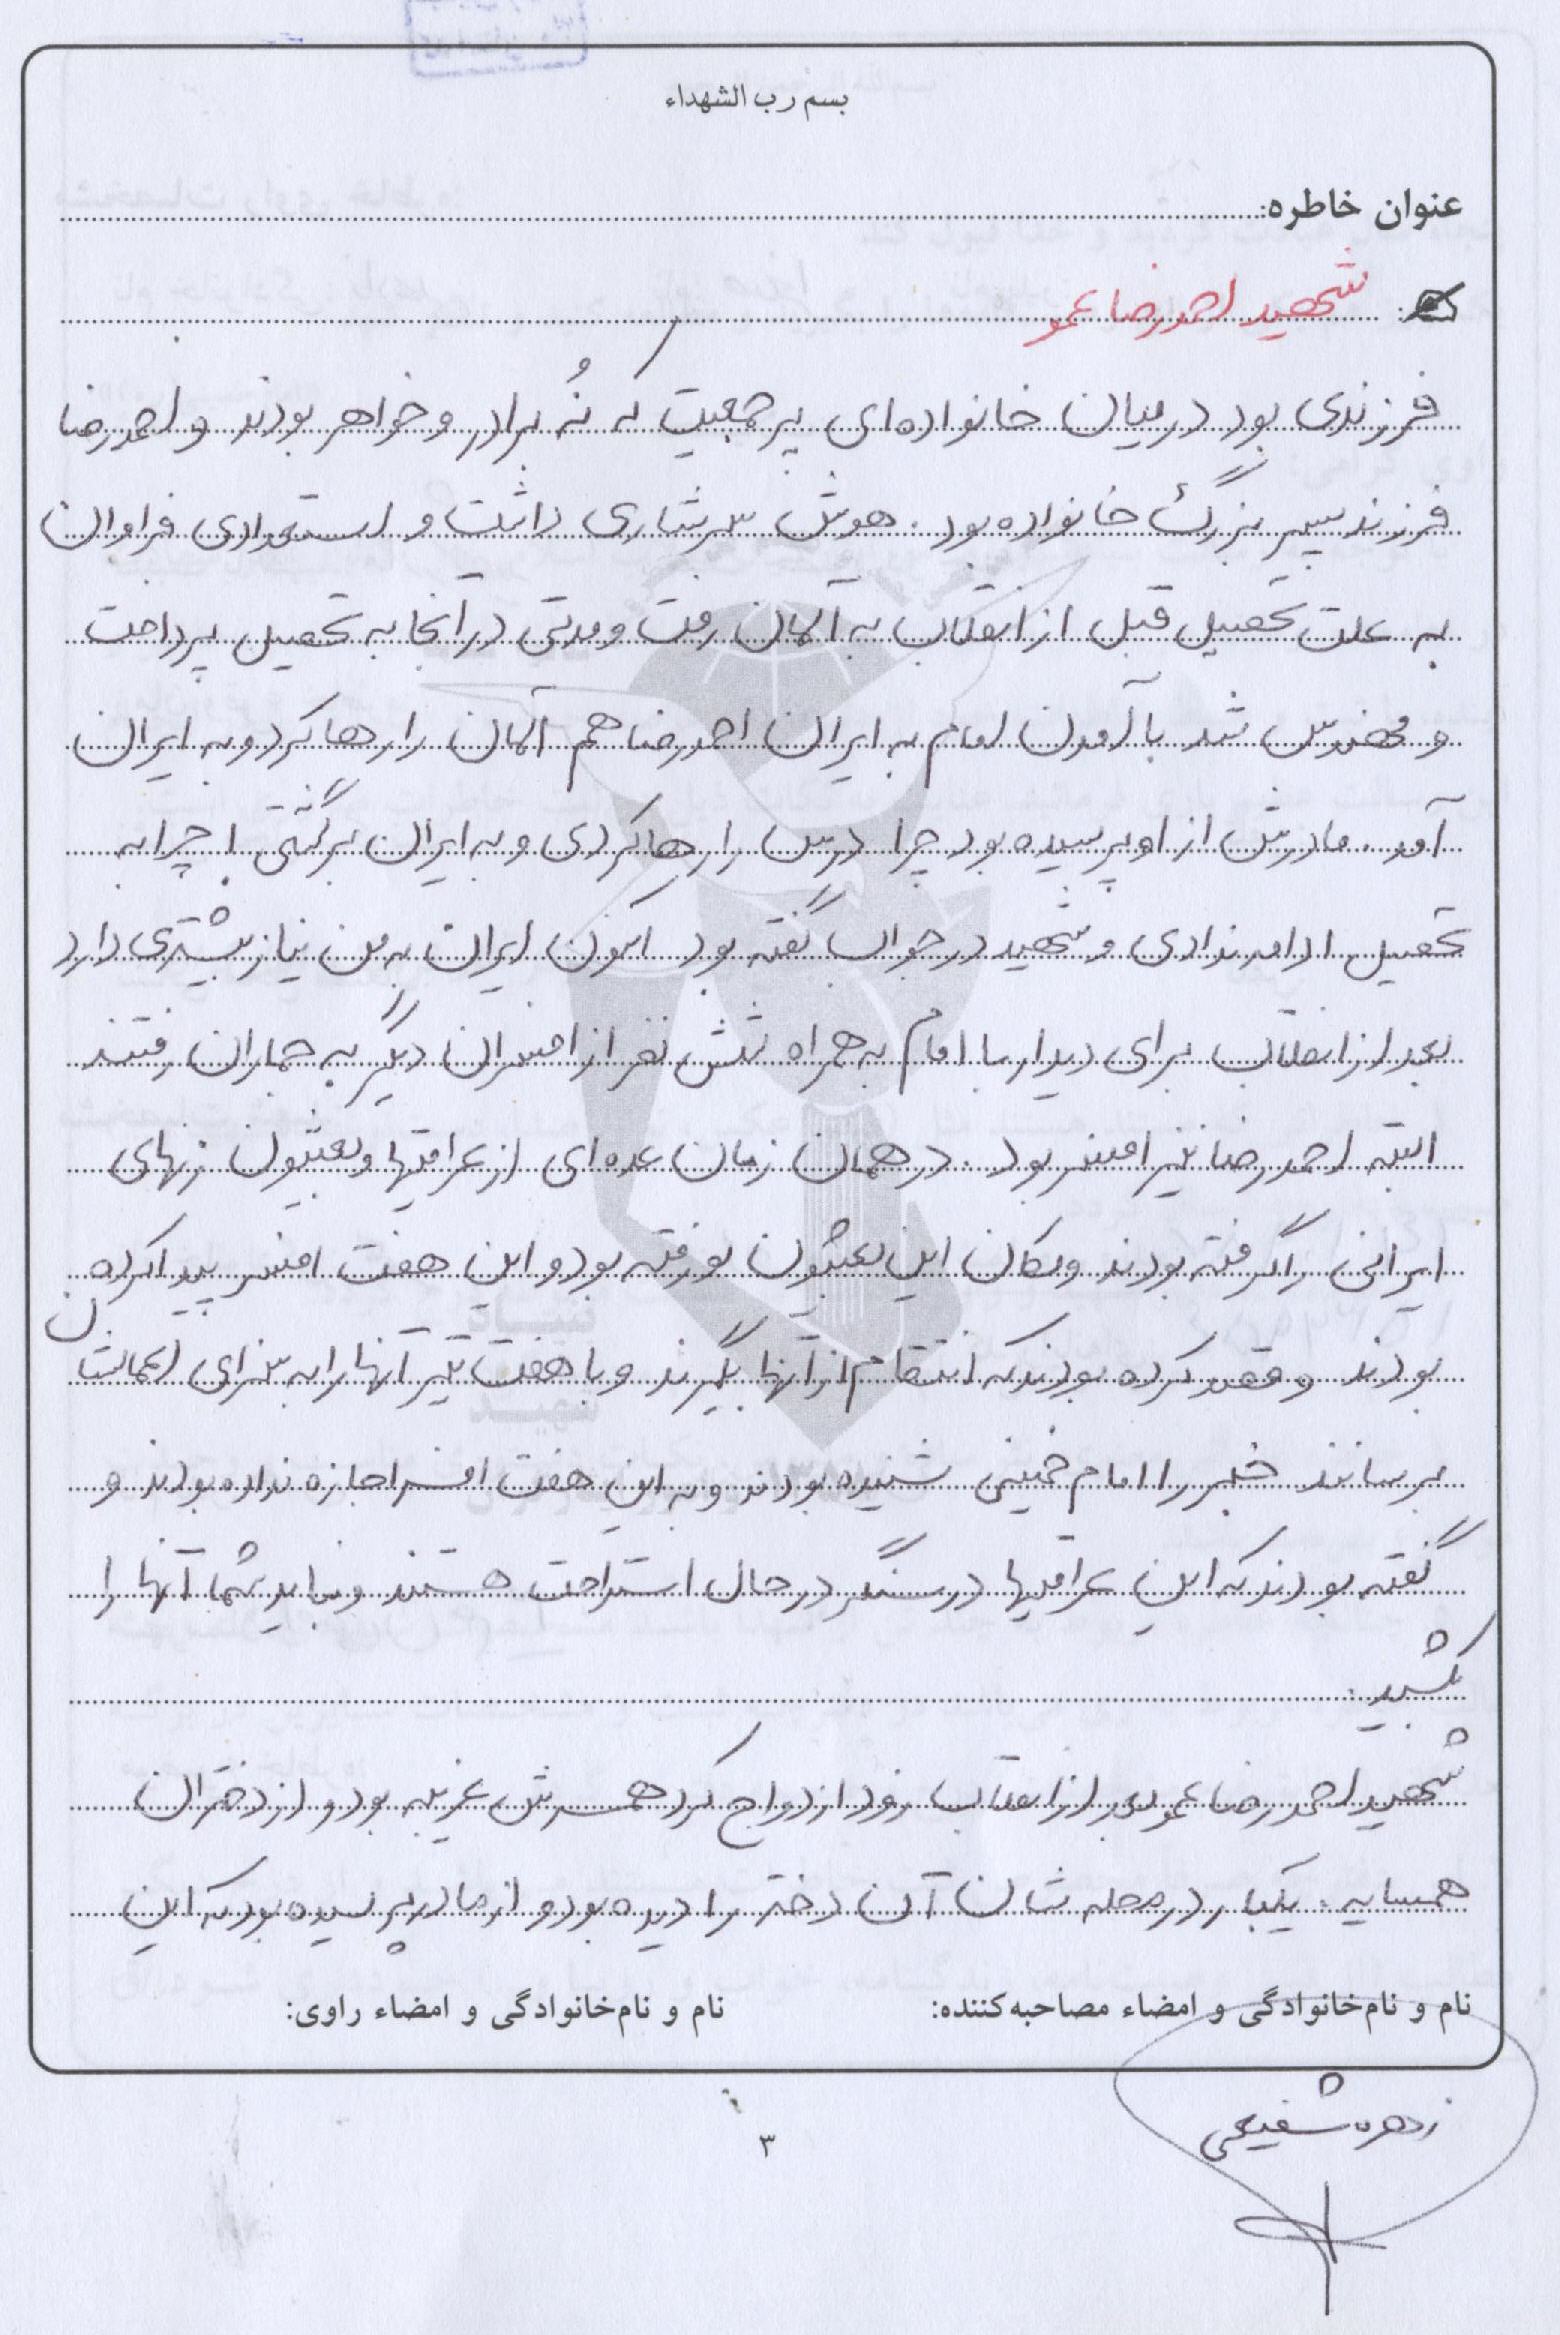 بسم رب الشهداء
عنوان خاطره:
شهید احمدرضا عمو
فرزندی بود در میان خانواده‌ای پر جمعیت که نُه برادر و خواهر بودند و احمدرضا
فرزند پسر بزرگ خانواده بود. هوش سرشاری داشت و استعدادی فراوان
به علت تحصیل قبل از انقلاب به آلمان رفت و مدتی در آنجا به تحصیل پرداخت
و مهندس شد با آمدن امام به ایران احمدرضا هم آلمان را رها کرد و به ایران
آمد. مادرش از او پرسیده بود چرا درس را رها کردی و به ایران برگشتی! چرا به
تحصیل ادامه ندادی و شهید در جواب گفته بود اکنون ایران به من نیاز بیشتری دارد
بعد از انقلاب برای دیدار با امام به همراه شش نفر از افسران دیگر به جماران رفتند
البته احمدرضا نیز افسر بود. در همان زمان عده‌ای از عراقیها و بعثیون زنهای
ایرانی را گرفته بودند و مکان این بعثیون لو رفته بود و این هفت افسر پیدا کرده
بودند و قصد کرده بودند که انتقام از آنها بگیرند و با هفت تیر آنها را به سزای اعمالشان
برسانند خبر را امام خمینی شنیده بودند و به این هفت افسر اجازه نداده بودند و
گفته بودند که این عراقیها در سنگر در حال استراحت هستند و نباید شما آنها را
بکشید.
شهید احمدرضا عمو بعد از انقلاب زود ازدواج کرد همسرش غریبه بود و از دختران
همسایه. یکبار در محله شان آن دختر را دیده بود و از مادر پرسیده بود که این
نام و نام‌خانوادگی و امضاء مصاحبه‌کننده:
نام و نام‌خانوادگی و امضاء راوی:
زهره شفیعی
۳